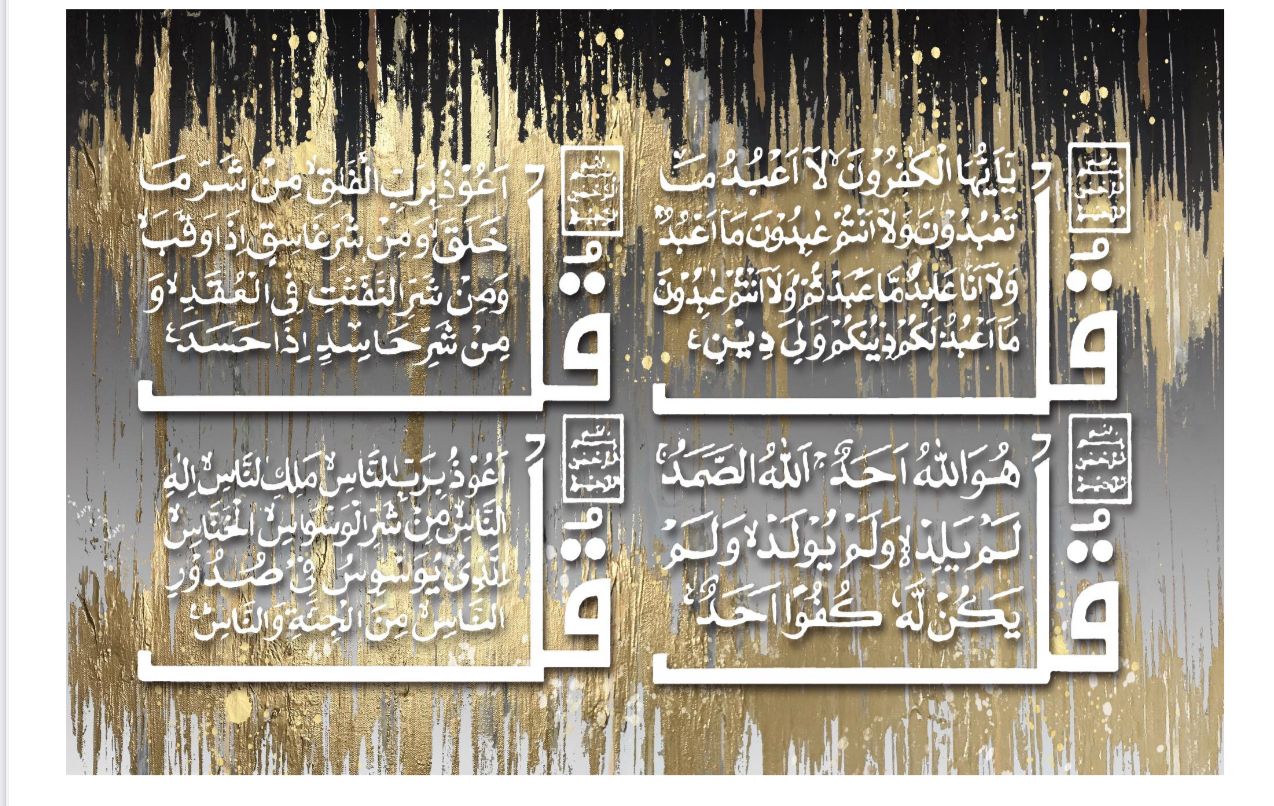 بسم الله
الرحمن
الرحيم
قُل
يٰٓاَيُّهَا الْكٰفِرُوْنَ لَآ اَعْبُدُ مَا
تَعْبُدُوْنَ وَلَآ اَنْتُمْ عٰبِدُوْنَ مَآ اَعْبُدُ
وَلَآ اَنَا عَابِدٌ مَّا عَبَدْتُّمْ وَلَآ اَنْتُمْ عٰبِدُوْنَ
مَآ اَعْبُدُ لَكُمْ دِيْنُكُمْ وَلِيَ دِيْنِ
بسم الله
الرحمن
الرحيم
قُل
اَعُوْذُ بِرَبِّ الْفَلَقِ مِنْ شَرِّ مَا
خَلَقَ وَمِنْ شَرِّ غَاسِقٍ اِذَا وَقَبَ
وَمِنْ شَرِّ النَّفّٰثٰتِ فِى الْعُقَدِ وَ
مِنْ شَرِّ حَاسِدٍ اِذَا حَسَدَ
بسم الله
الرحمن
الرحيم
قُل
هُوَ اللّٰهُ اَحَدٌ اَللّٰهُ الصَّمَدُ
لَمْ يَلِدْ وَلَمْ يُوْلَدْ وَلَمْ
يَكُنْ لَّهٗ كُفُوًا اَحَدٌ
بسم الله
الرحمن
الرحيم
قُل
اَعُوْذُ بِرَبِّ النَّاسِ مَلِكِ النَّاسِ اِلٰهِ
النَّاسِ مِنْ شَرِّ الْوَسْوَاسِ الْخَنَّاسِ
الَّذِىْ يُوَسْوِسُ فِىْ صُدُوْرِ
النَّاسِ مِنَ الْجِنَّةِ وَالنَّاسِ